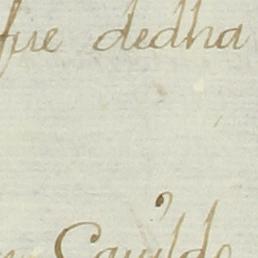 fue dedha
Cavildo